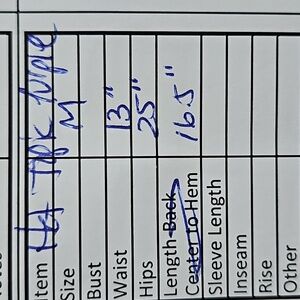 Item Hot Topic Purple
Size M
Bust
Waist 13"
Hips 25"
Length Back 16.5"
Center to Hem
Sleeve Length
Inseam
Rise
Other